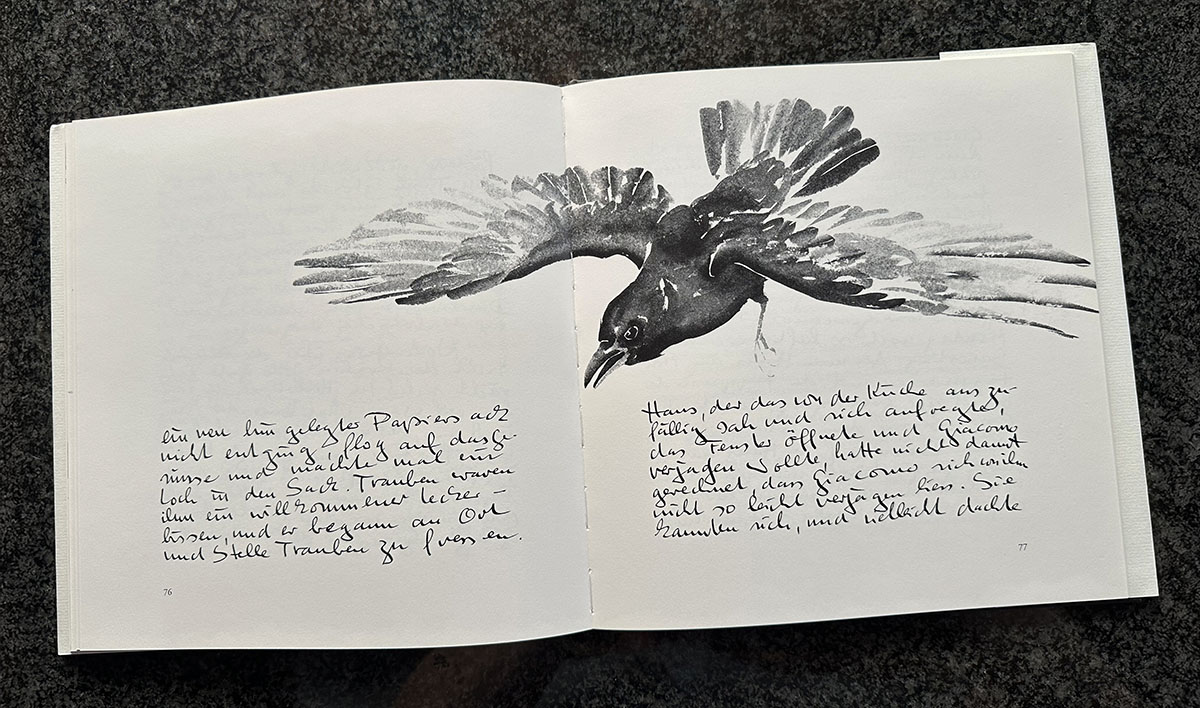 ein neu hin gelegter Papiersack
nicht entging, flog auf das Ge-
müse und machte mal ein
Loch in den Sack. Trauben waren
ihm ein willkommener Lecker-
bissen, und er begann an Ort
und Stelle Trauben zu fressen.
76
Hans, der das von der Küche aus zu-
fällig sah und sich aufregte,
das Fenster öffnete und Giacomo
verjagen wollte, hatte nicht damit
gerechnet, dass Giacomo sich von ihm
nicht so leicht verjagen liess. Sie
kannten sich, und vielleicht dachte
77